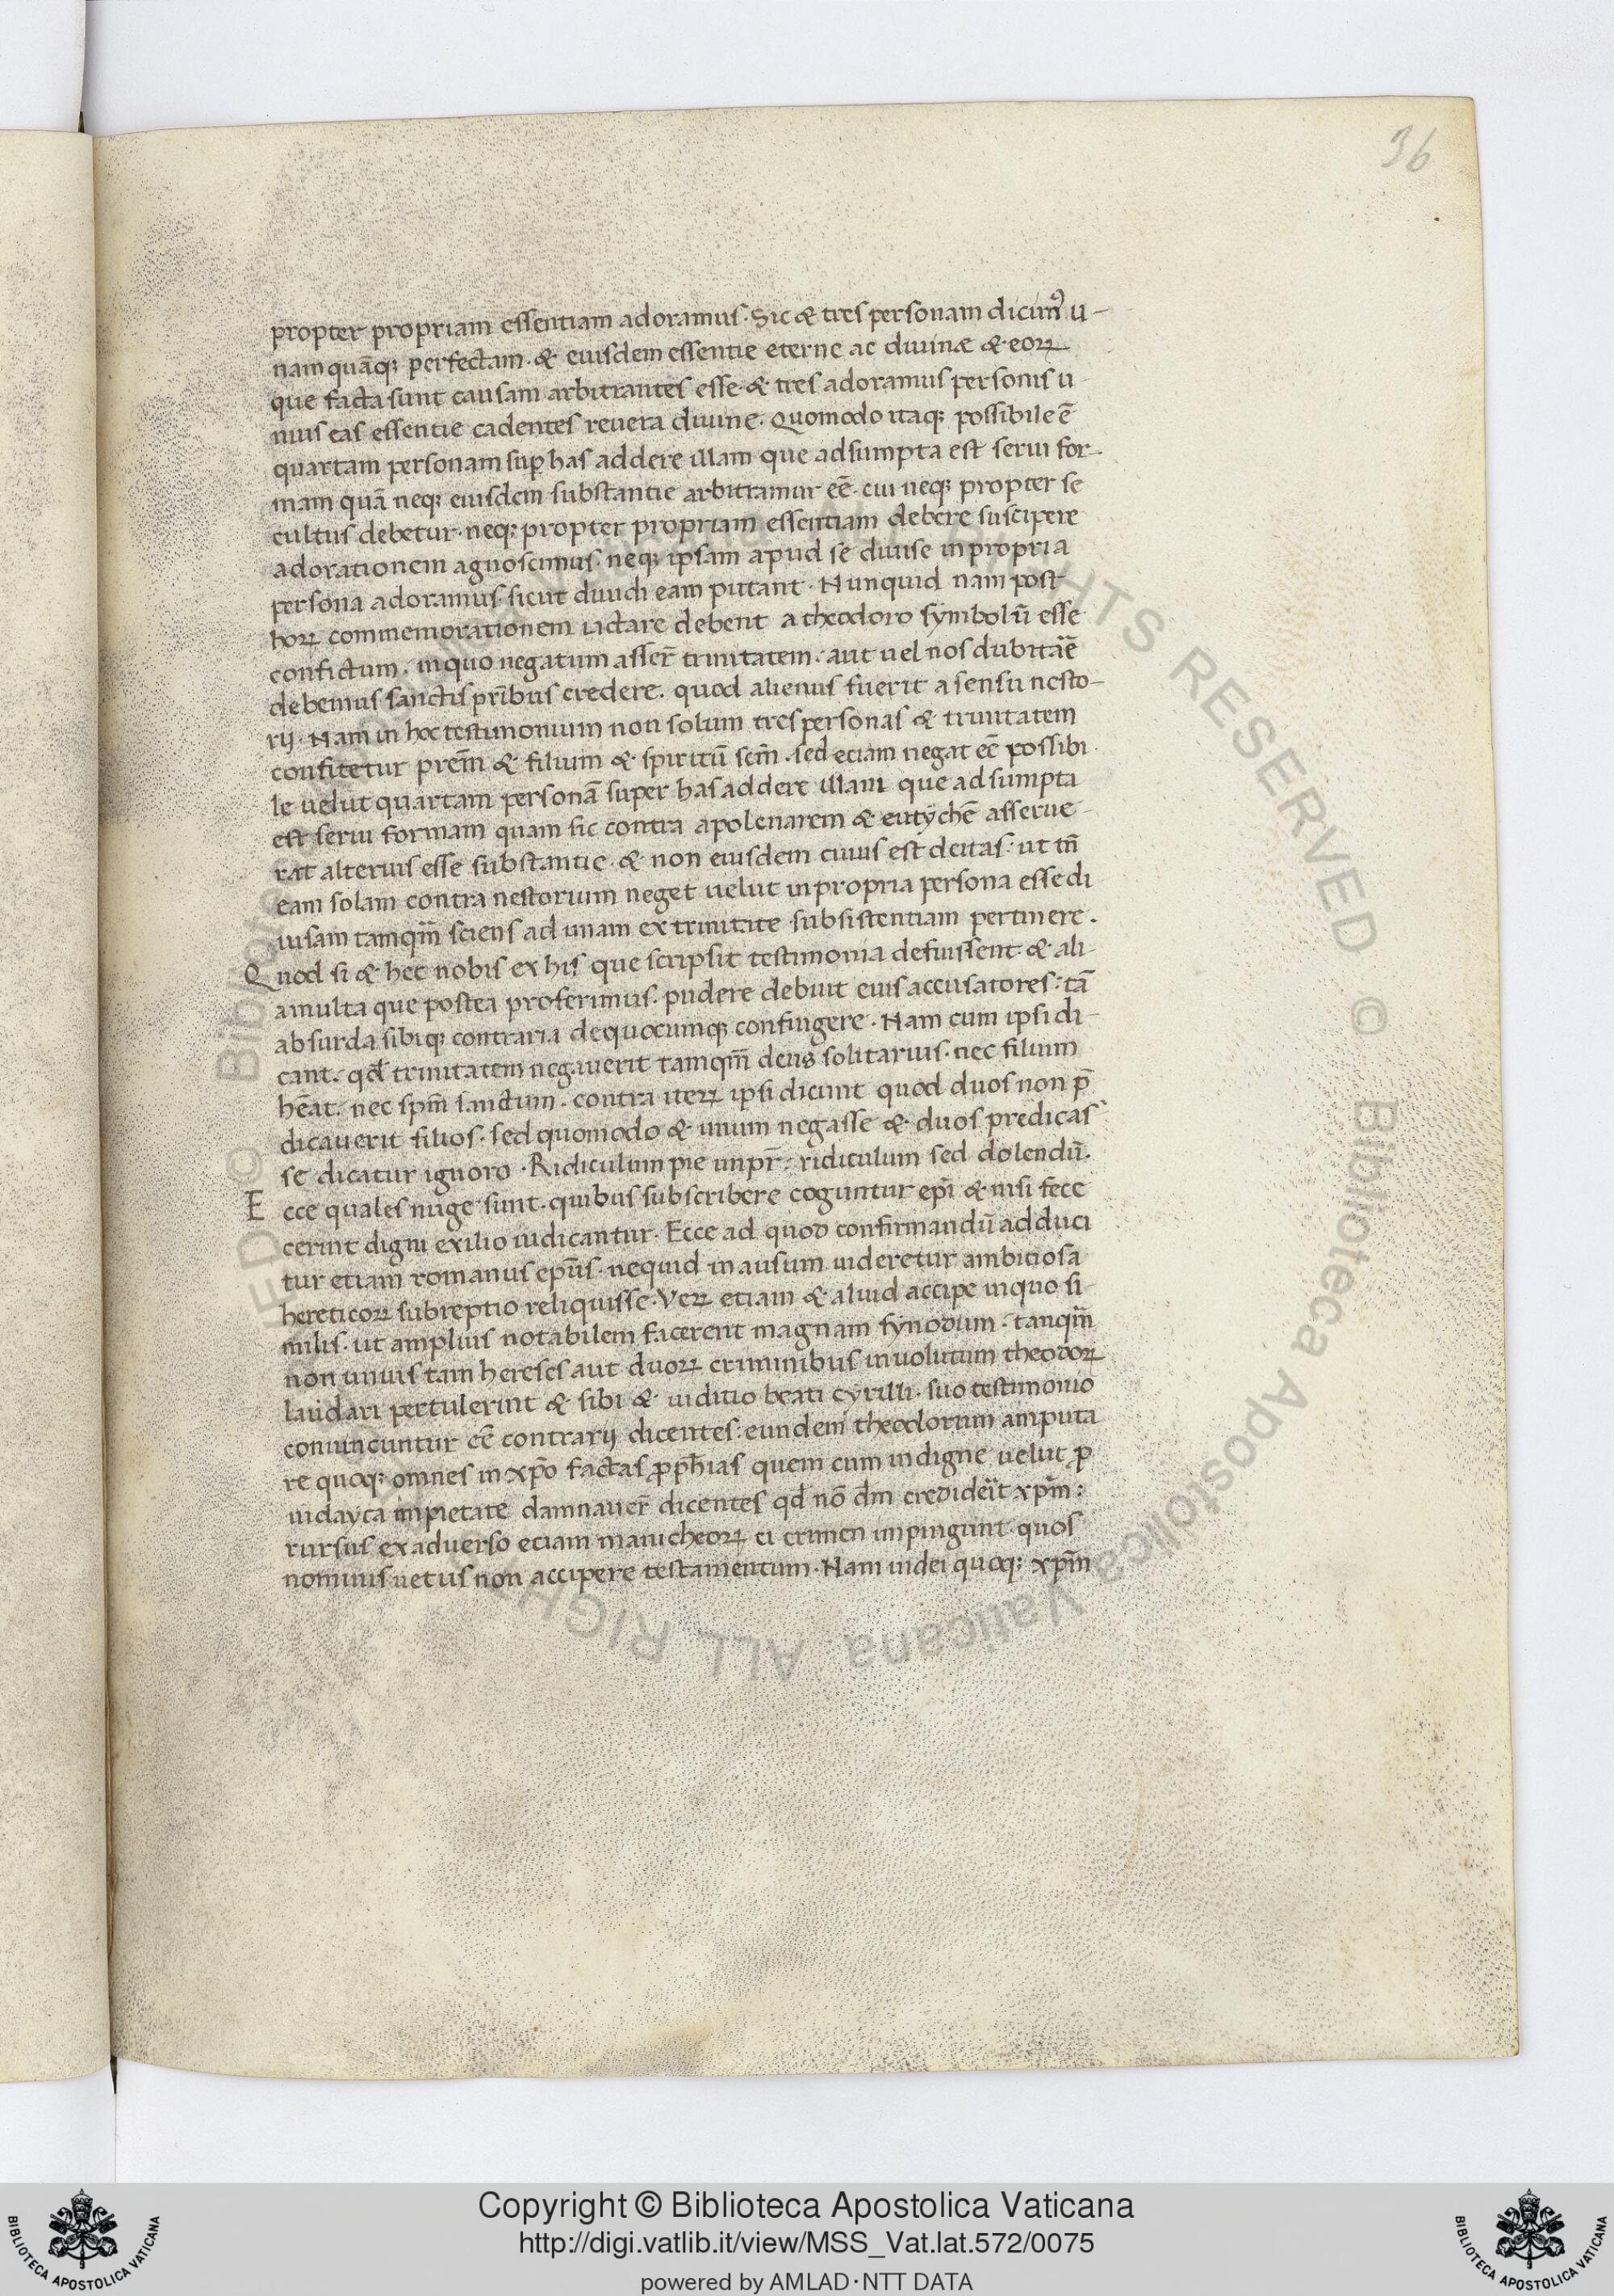 36
propter propriam essentiam adoramus. Sic & tres personam dicimꝰ u-
nam quāq; perfectam. & eiusdem essentie eterne ac diuinæ & eoꝝ
que facta sunt causam arbitrantes esse. & tres adoramus personis u
nius eas essentie cadentes reuera diuine. Quomodo itaq; possibile ē
quartam personam suꝑ has addere illam que adsumpta est serui for-
mam quā neq; eiusdem substantie arbitramur eē. cui neq; propter se
cultus debetur. neq; propter propriam essentiam debere suscipere
adorationem agnoscimus. neq; ipsam apud se diuise in propria
persona adoramus. sicut diuidi eam putant. Nunquid nam post
hoꝝ commemorationem iactare debent a theodoro symbolū esse
confictum. in quo negatum asser̄ trinitatem. aut uel nos dubitār̄e
debemus sanctis pr̄ibus credere. quod alienus fuerit a sensu nesto-
rij. Nam in hoc testimonium non solum tres personas & trinitatem
confitetur prēm & filium & spiritū scm̄. sed eciam negat eē possibi
le uelut quartam personā super has addere illam que adsumpta
est serui formam quam sic contra apolenarem & eutychē asserue-
rat alterius esse substantie. & non eiusdem cuius est deitas: ut tn̄
eam solam contra nestorium neget uelut in propria persona esse di
uisam tamqm̄ sciens ad unam ex trinitate subsistentiam pertinere.
Quod si & hec nobis ex his que scripsit testimonia defuissent. & ali-
a multa que postea proferimus. pudere debuit eius accusatores: tā
absurda sibiq; contraria de quocumq; confingere. Nam cum ipsi di-
cant. qđ trinitatem negauerit tamqm̄ deus solitarius. nec filium
hēat. nec spm̄ sanctum. contra iteꝝ ipsi dicunt quod duos non p̄
dicauerit filios. sed quomodo & unum negasse & duos predicas
se dicatur ignoro. Ridiculum pie impr̄. ridiculum sed dolendū.
Ecce quales nuge sunt. quibus subscribere coguntur epī & nisi fece
cerint digni exilio iudicantur. Ecce ad quod confirmandū adduci
tur etiam romanus epūs. nequid in ausum uideretur ambiciosa
hereticoꝝ subreptio reliquisse. Veꝝ etiam & aliud accipe in quo si-
milis. ut amplius notabilem facerent magnam synodum. tanqm̄
non unius tam hereses aut duoꝝ criminibus inuolutum theodoꝝ
laudari pertulerint & sibi & iuditio beati cyrilli. suo testimonio
conuincuntur eē contrarij dicentes: eundem theodorum amputa
re quoq; omnes in xp̄o factas ꝓph̄ias quem cum indigne uelut ꝓ
iudayca impietate damnauer̄ dicentes qđ nō dm̄ crediderīt xpm̄:
rursus ex aduerso eciam manicheoꝝ ei crimen impingunt. quos
nominis uetus non accipere testamentum. Nam iudei quoq; xpm̄
Copyright © Biblioteca Apostolica Vaticana
http://digi.vatlib.it/view/MSS_Vat.lat.572/0075
powered by AMLAD·NTT DATA